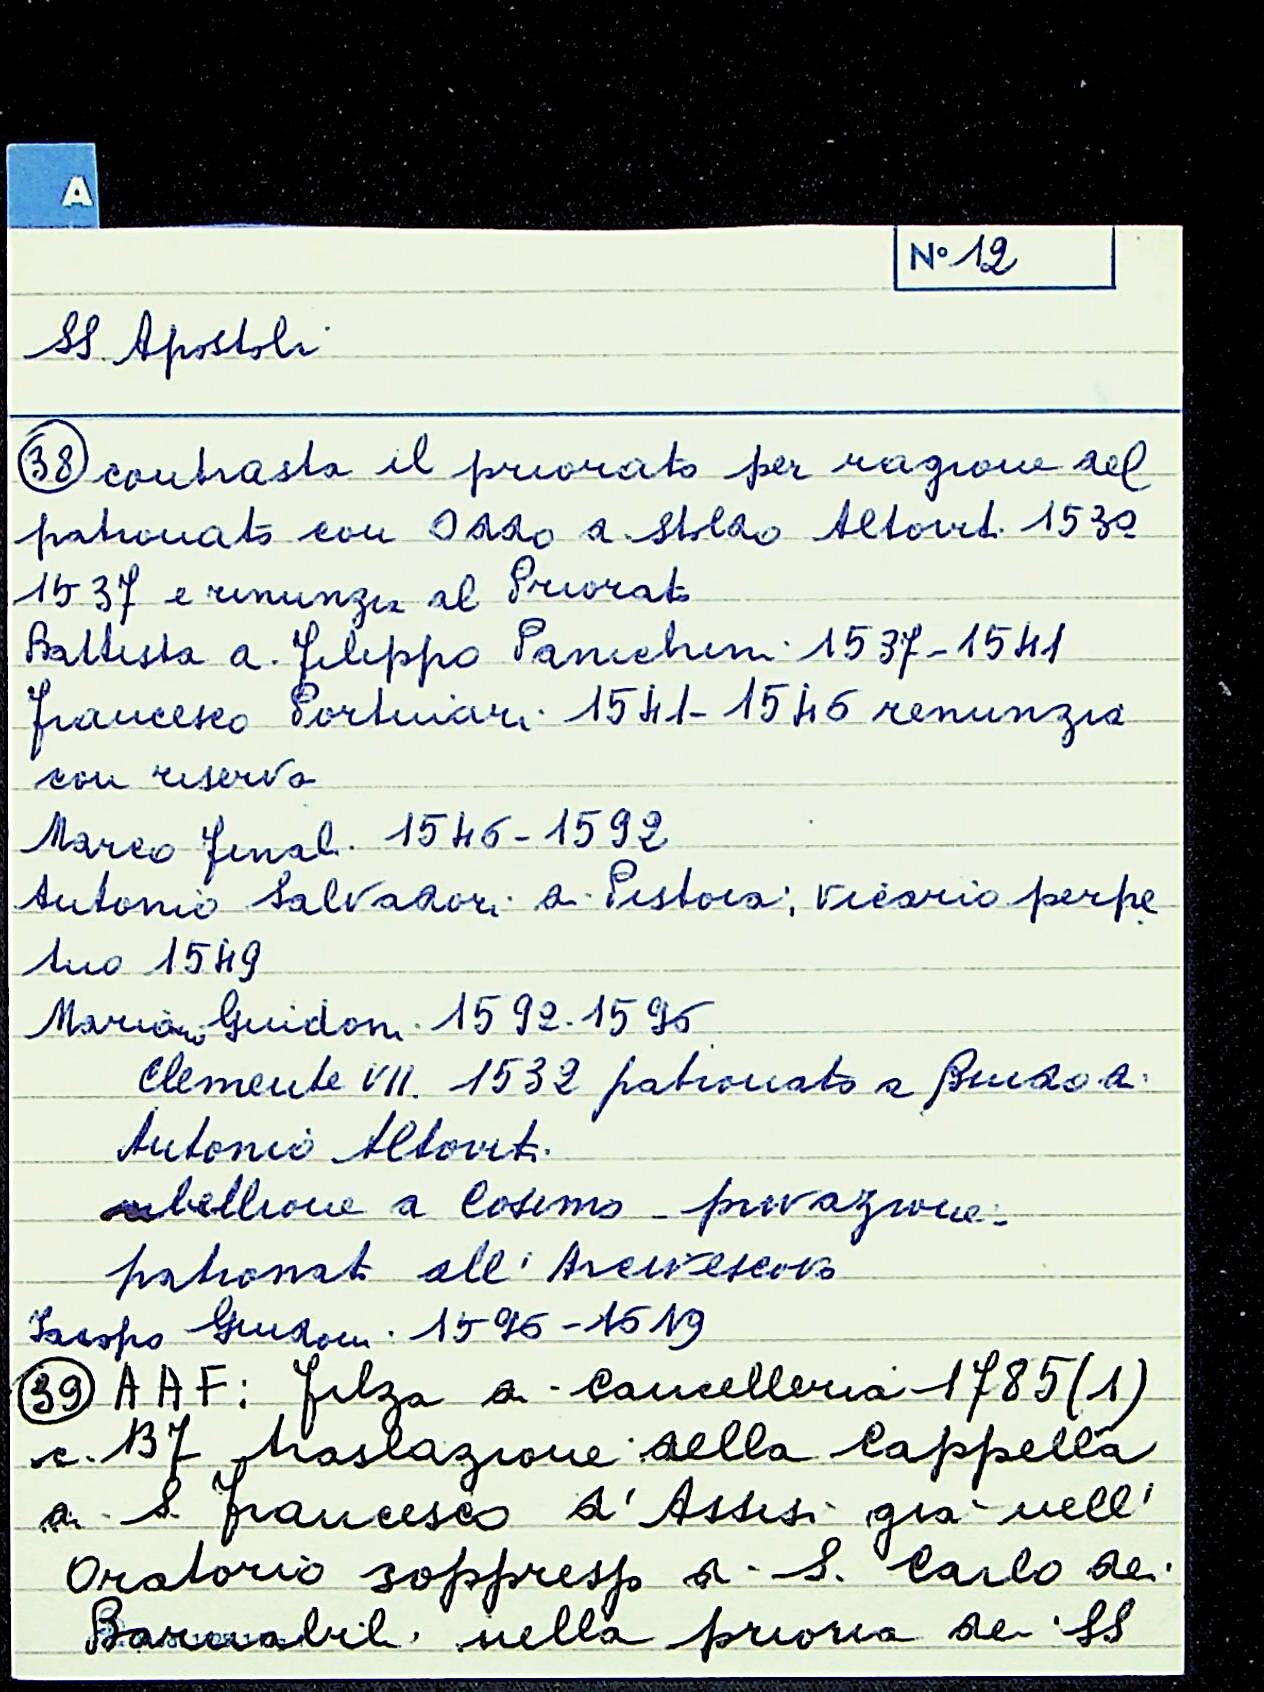 A
N° 12
SS. Apostoli
38 contrasta il priorato per ragione del
patronato con Oddo di Stoldo Altoviti 1532
1537 e renunzia al Priorato
Battista di Filippo Panichini 1537-1541
Francesco Portinari 1541-1546 renunzia
con riserva
Marco Finali 1546-1592
Antonio Salvadori di Pistoia, vicario perpe
tuo 1549
Mariano Guidoni 1592-1596
Clemente VII. 1532 patronato a Bindo di
Antonio Altoviti
ribellione a Cosimo - privazione -
patronato all'Arcivescovo
Iacopo Guidoni 1596-1619
39 AAF: Filza di Cancelleria 1785(1)
c. 137 traslazione della Cappella
di S. Francesco d'Assisi già nell'
Oratorio soppresso di S. Carlo dei
Barnabiti nella prioria dei SS